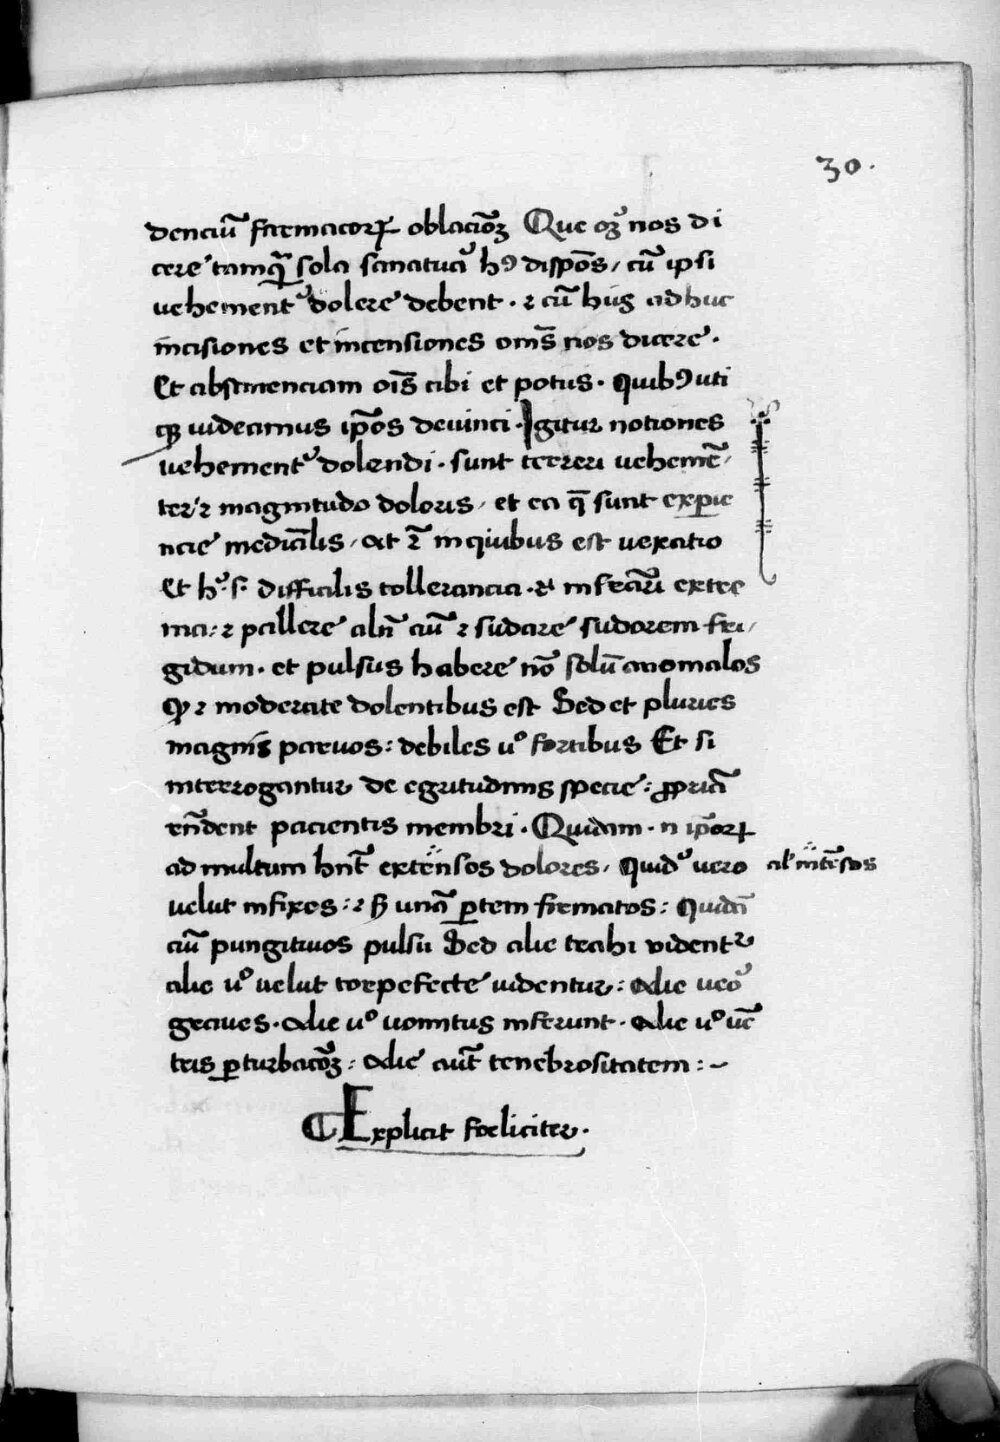 30.
denciū farmacorꝝ oblacionē Que oꝫ nos di
cere tamqᷓ sola sanatiuā hꝰ disponis / cū ipsi
vehementʼ dolere debent · ⁊ cū huiꝰ adhuc
incisiones et incensiones om̄s nos dicere ·
Et abstinenciam ois cibi et potus · quibꝰ uti
qꝫ uidecimus ipōs deuinci · Igitur notiones
vehementʼ dolendi · sunt terreri uehemē /
ter / ⁊ magnitudo doloris / et ea q̄ sunt expie
ncie medicīalis / at in quibus est uexatio
Et difficilis tollerancia · infecāri extre
ma : ⁊ pallere ciū ⁊ sudare sudorem fri /
gidum · et pulsus habere nō solū anomalos
qꝫ ⁊ moderate dolentibus est Sed et plures
magnis paruos : debiles uº fortibus Et si
interrogantur de egritudinis specie : ꝓpriā
rn̄dent pacientis membri · Quidam · n ipōrꝝ
ad multum hn̄t extensos dolores / quidʼ vero
al' intēsos
velut infixos : ⁊ unā ꝑtem firmatos : Quidā
ciū pungitiuos pulsu Sed alie trahi videntʼ
alie uº velut torpefecte videntur : Alie veoʼ
graues · Alie uº vomitus inferunt · Alie uº uē
tris ꝑturbacōꝫ : Alie aūt tenebrositatem : ~
Explicit foeliciter ·